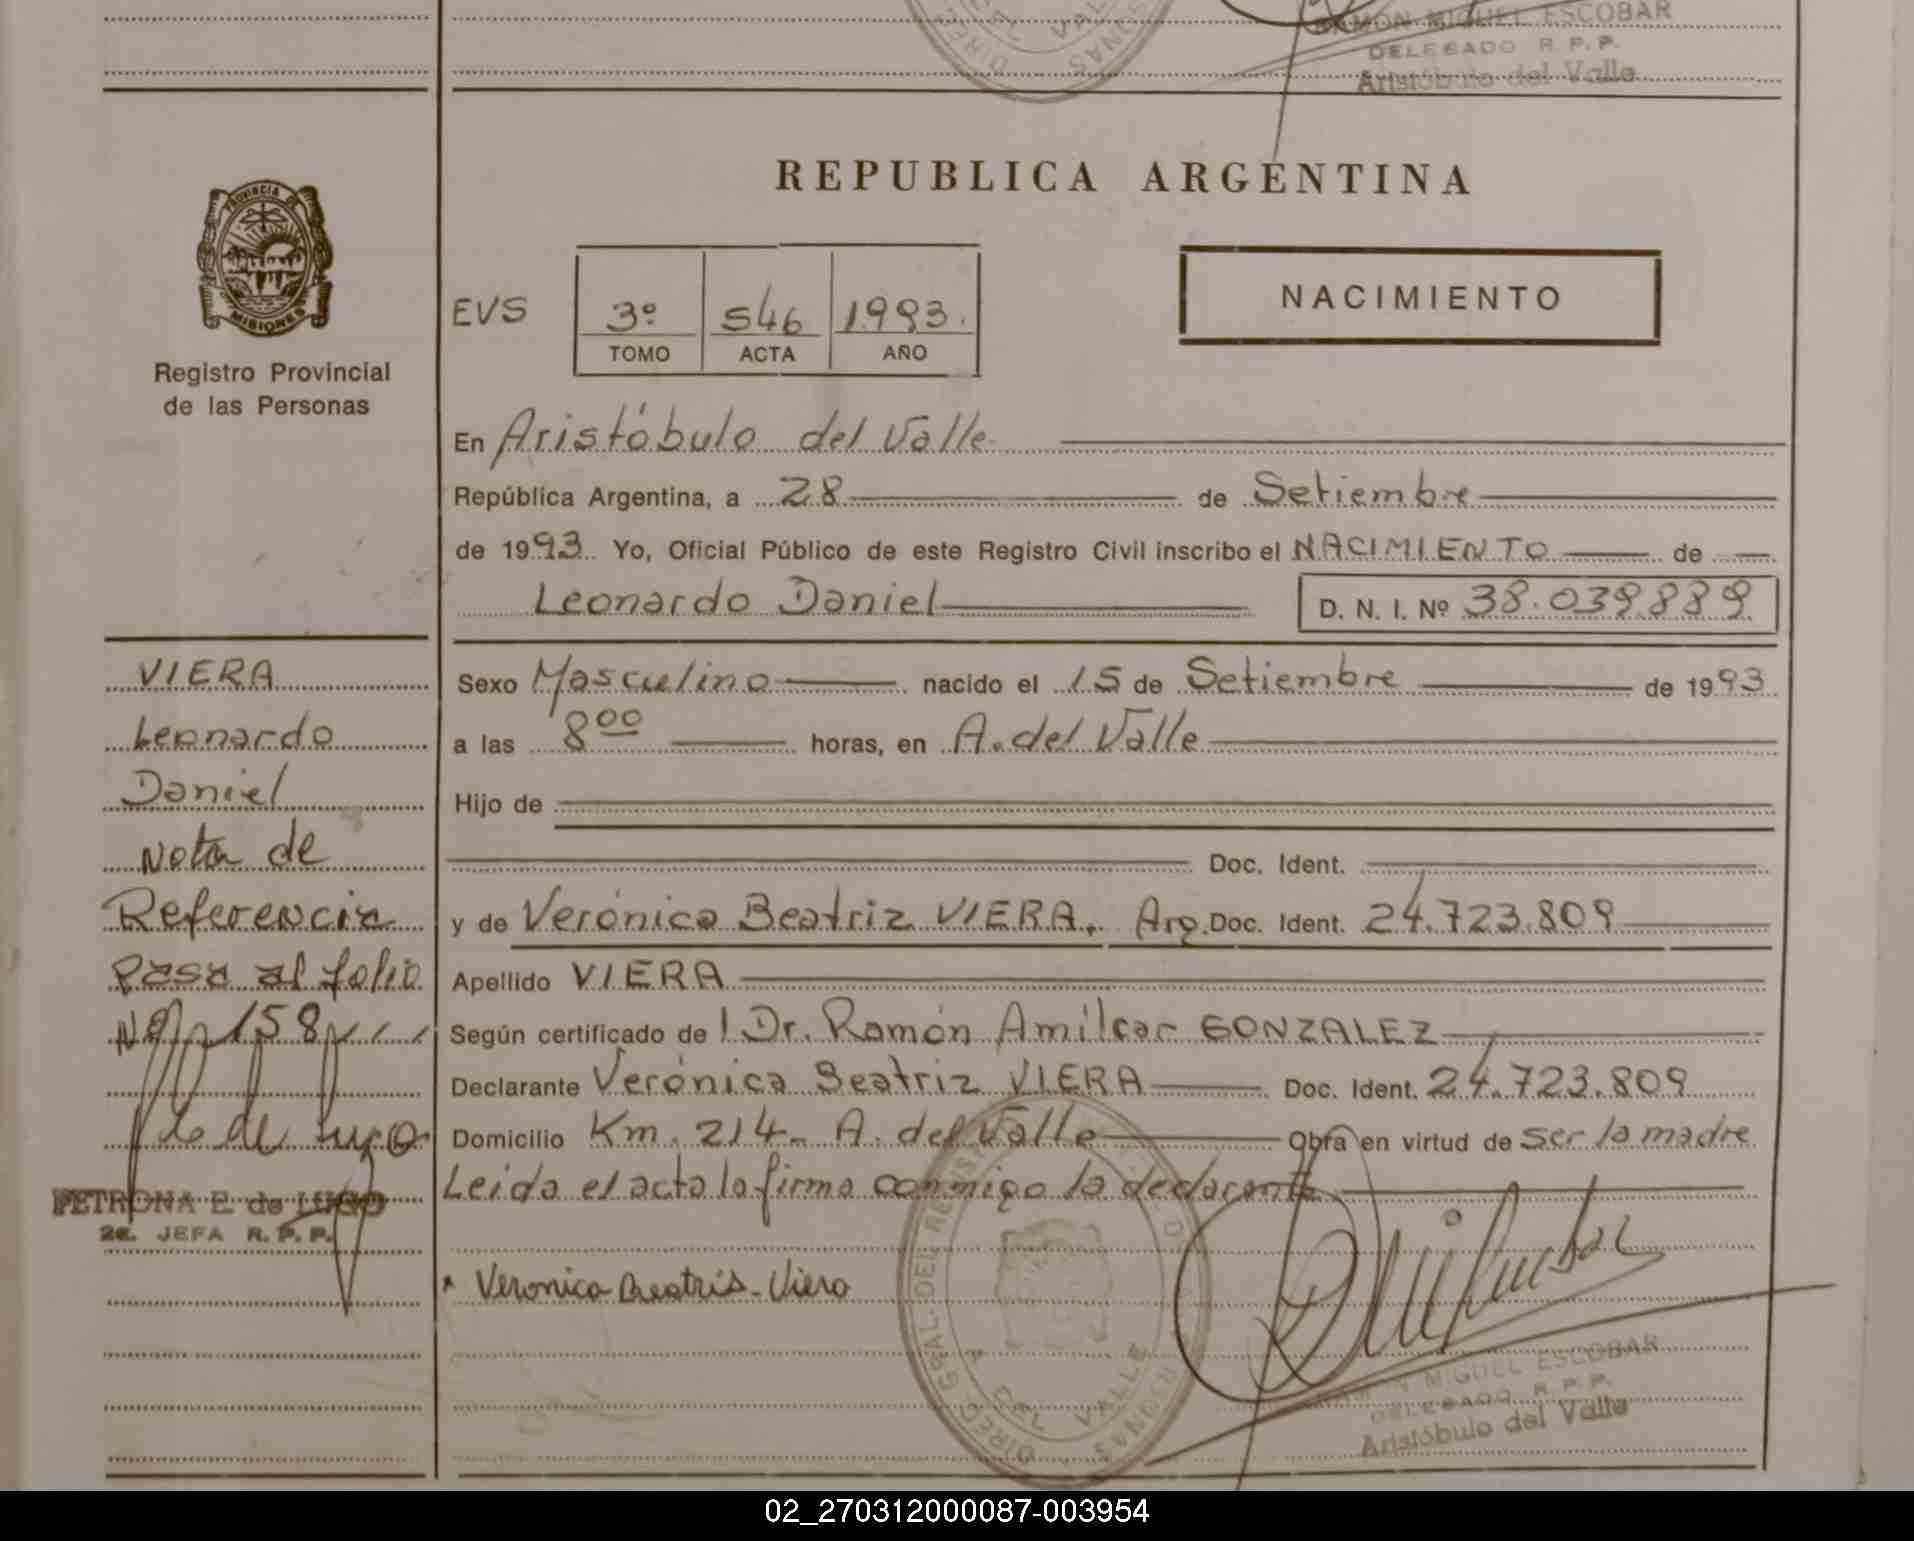 RAMON MIGUEL ESCOBAR
DELEGADO R. P. P.
Aristóbulo del Valle
REPUBLICA ARGENTINA
PROVINCIA DE
MISIONES
Registro Provincial
de las Personas
EVS
3º 546 1993.
TOMO ACTA AÑO
NACIMIENTO
En Aristóbulo del Valle
República Argentina, a 28 de Setiembre
de 1993 Yo, Oficial Público de este Registro Civil inscribo el NACIMIENTO de
Leonardo Daniel D. N. I. Nº 38.039.889
Sexo Masculino nacido el 15 de Setiembre de 1993
a las 8 00 horas, en A. del Valle
Hijo de
Doc. Ident.
y de Verónica Beatriz VIERA. Arg. Doc. Ident. 24.723.809
Apellido VIERA
Según certificado de Dr. Ramón Amilcar GONZALEZ
Declarante Verónica Beatriz VIERA Doc. Ident. 24.723.809
Domicilio Km. 214 - A. del Valle Obra en virtud de ser la madre
Leida el acta la firma conmigo la declarante
Veronica Beatris Viera
DIREC. GRAL. DEL REGIST
A. DEL VALLE
RAMON MIGUEL ESCOBAR
DELEGADO R. P. P.
Aristóbulo del Valle
VIERA
Leonardo
Daniel
Nota de
Referencia
Pasa al folio
Nº 158
PETRONA E. de LUGO
2a. JEFA R. P. P.
02_270312000087-003954